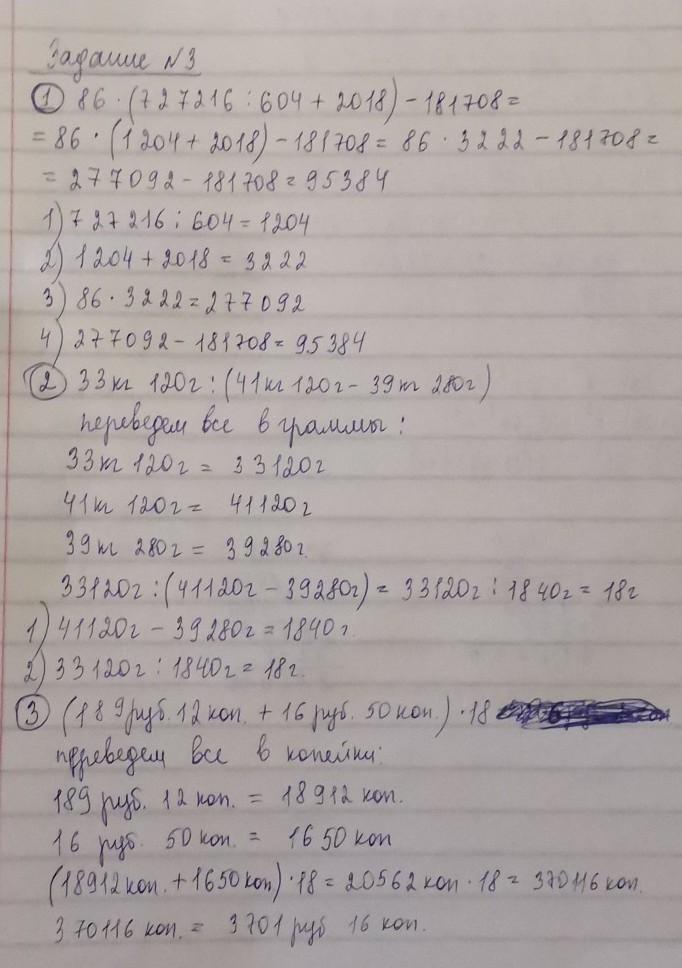 Задание №3
① 86 · (727216 : 604 + 2018) - 181708 =
= 86 · (1204 + 2018) - 181708 = 86 · 3222 - 181708 =
= 277092 - 181708 = 95384
1) 727216 : 604 = 1204
2) 1204 + 2018 = 3222
3) 86 · 3222 = 277092
4) 277092 - 181708 = 95384
② 33кг 120г : (41кг 120г - 39кг 280г)
переведем все в граммы:
33кг 120г = 33120г
41кг 120г = 41120г
39кг 280г = 39280г.
33120г : (41120г - 39280г) = 33120г : 1840г = 18г
1) 41120г - 39280г = 1840г.
2) 33120г : 1840г = 18г.
③ (189руб. 12коп. + 16руб. 50коп.) · 18
переведем все в копейки:
189 руб. 12 коп. = 18912 коп.
16 руб. 50 коп. = 1650 коп
(18912коп. + 1650коп) · 18 = 20562коп · 18 = 370116коп.
370116 коп. = 3701 руб 16 коп.